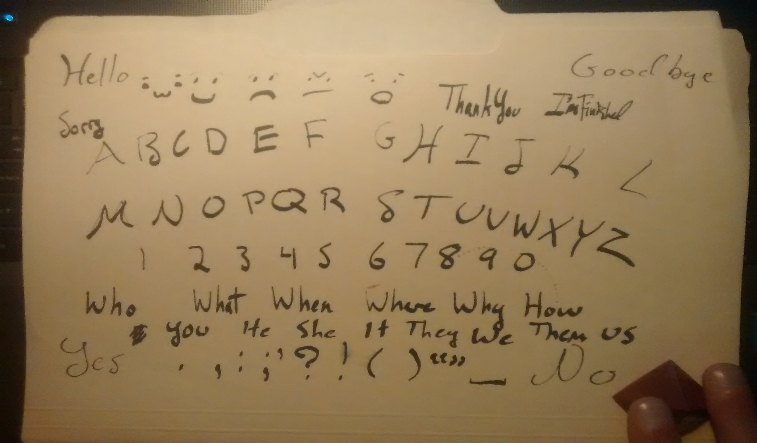 Hello Goodbye
Thank You I'm Finished
Sorry
A B C D E F G H I J K L
M N O P Q R S T U V W X Y Z
1 2 3 4 5 6 7 8 9 0
Who What When Where Why How
You He She It They We Them us
Yes . , : ; ' ? ! ( ) “ ” _ No